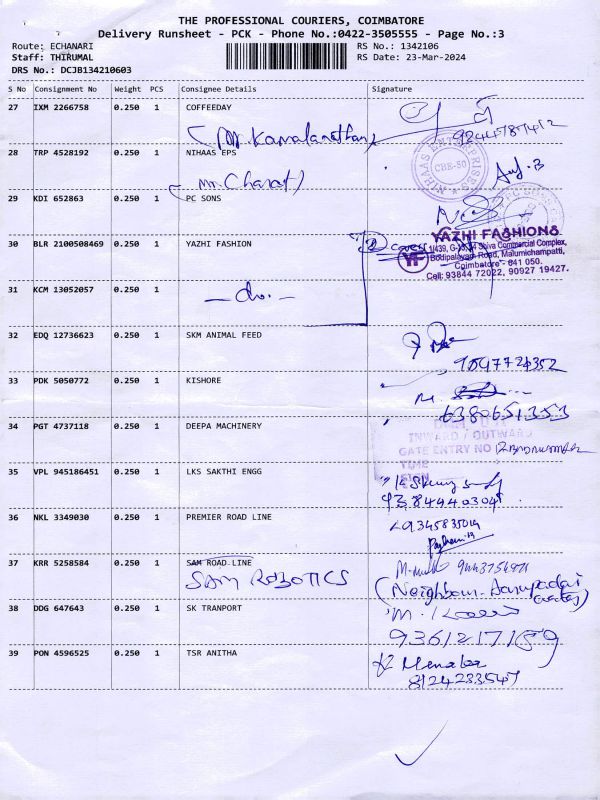 THE PROFESSIONAL COURIERS, COIMBATORE
Delivery Runsheet - PCK - Phone No.:0422-3505555 - Page No.:3
Route: ECHANARI RS No.: 1342106
Staff: THIRUMAL RS Date: 23-Mar-2024
DRS No.: DCJB134210603
S No Consignment No Weight PCS Consignee Details Signature
27 IXM 2266758 0.250 1 COFFEEDAY
(Mr. Kamalanathan)
28 TRP 4528192 0.250 1 NIHAAS EPS
NIHAAS ENTERPRISES
CBE-50
Mr. Charat)
29 KDI 652863 0.250 1 PC SONS
30 BLR 2100508469 0.250 1 YAZHI FASHION
YAZHI FASHIONS
YF
2 covers
Shiva Commercial Complex,
Bodipalayam Road, Malumichampatti,
Coimbatore - 641 050.
Cell: 93844 72022, 90927 19427.
31 KCM 13052057 0.250 1
- do. -
32 EDQ 12736623 0.250 1 SKM ANIMAL FEED
33 PDK 5050772 0.250 1 KISHORE
6380651353
34 PGT 4737118 0.250 1 DEEPA MACHINERY
INWARD / OUTWARD
GATE ENTRY NO
TIME
SIGN
35 VPL 945186451 0.250 1 LKS SAKTHI ENGG
9384440304
36 NKL 3349030 0.250 1 PREMIER ROAD LINE
37 KRR 5258584 0.250 1 SAM ROAD LINE
SAM ROBOTICS
(Neighbour-
38 DDG 647643 0.250 1 SK TRANPORT
9361217159
39 PON 4596525 0.250 1 TSR ANITHA
Menaka
8124233547